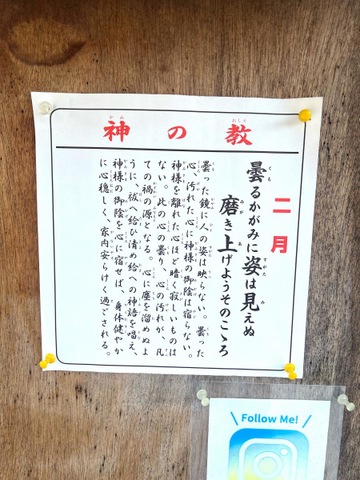 神の教
二月
曇るかがみに姿は見えぬ
磨き上げようそのこゝろ
曇った鏡に人の姿は映らない。曇った
心、汚れた心に神様の御陰は宿らない。
神様を離れた心ほど暗く寂しいものは
ない。此の心の曇り、心の汚れが、凡
ての禍の源となる。心に塵を溜めぬよ
うに、祓へ給ひ清め給への神語を唱え、
神様の御陰を心に宿せば、身体健やか
に心穏しく、家内安らけく過ごされる。
Follow Me!